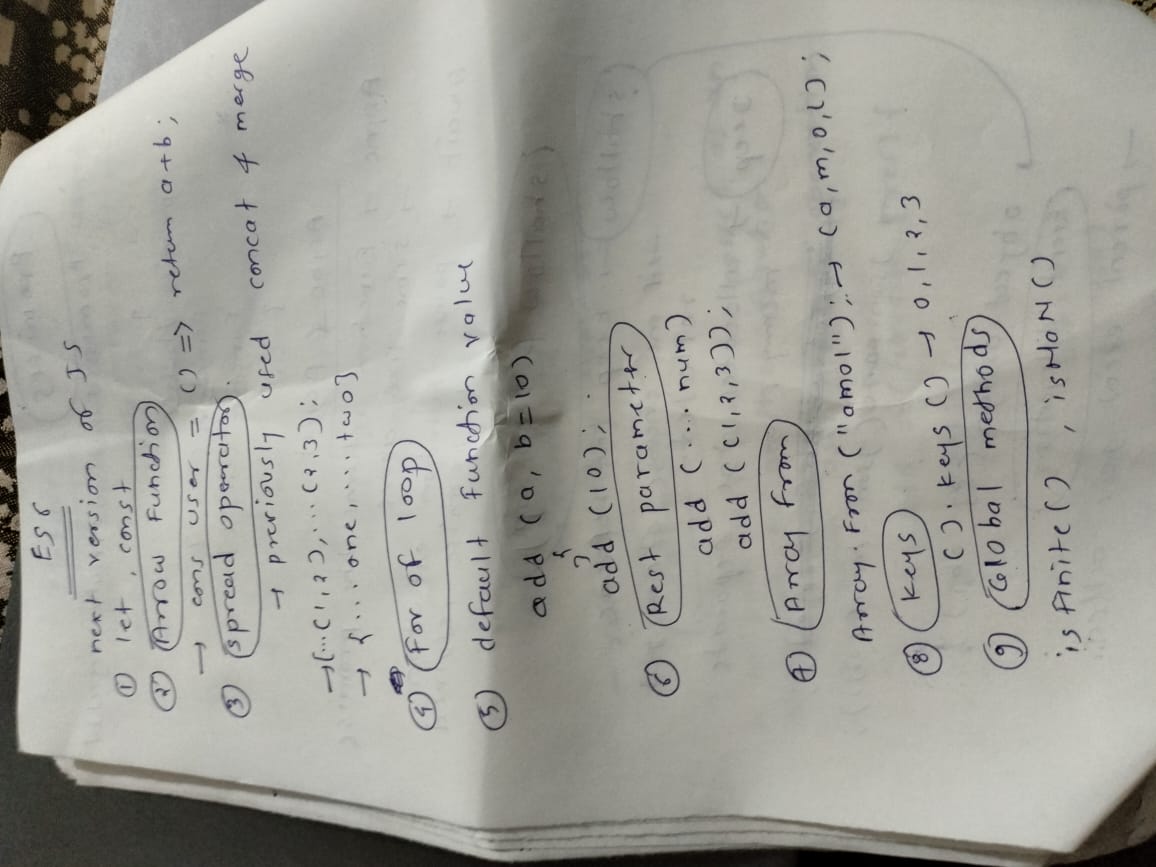 ES6
next version of JS
① let, const
② Arrow Function
→ cons user = () => return a+b;
③ spread operator.
→ previously used concat & merge
→ [...(1,2), ...(2,3);
→ {...one, ...two}
④ For of loop
⑤ default function value
add (a, b=10)
{
}
add (10);
⑥ Rest parameter
add (...num)
add ((1,2,3));
⑦ Array from
Array.from("amol"); → (a,m,o,l);
⑧ Keys
().keys() → 0,1,2,3
⑨ Global methods
isfinite(), isNaN()